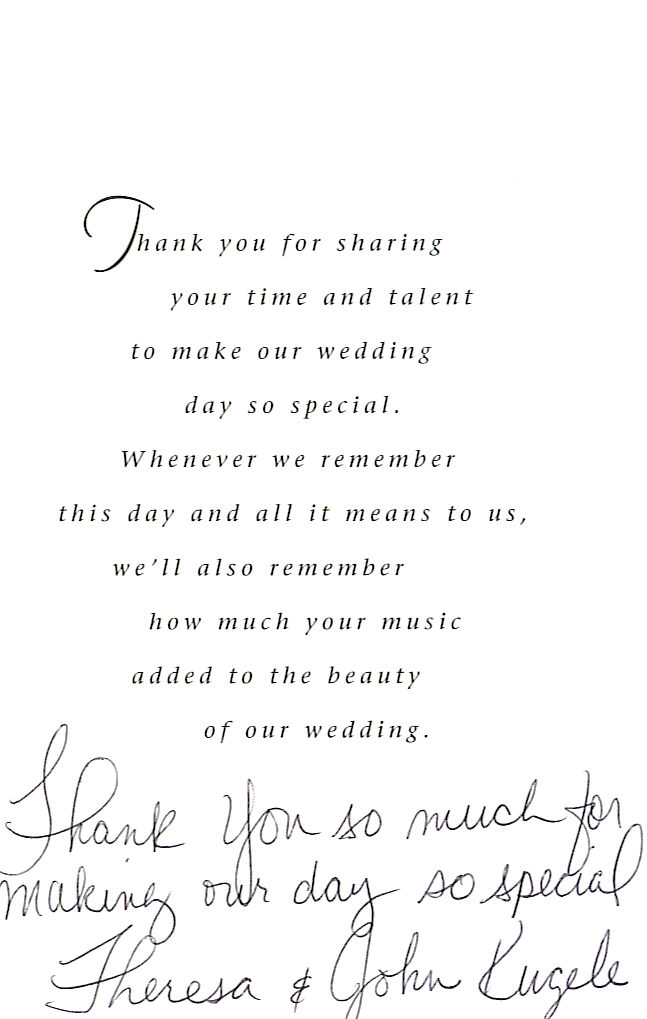 Thank you for sharing
your time and talent
to make our wedding
day so special.
Whenever we remember
this day and all it means to us,
we'll also remember
how much your music
added to the beauty
of our wedding.
Thank You so much for
making our day so special
Theresa & John Kugele